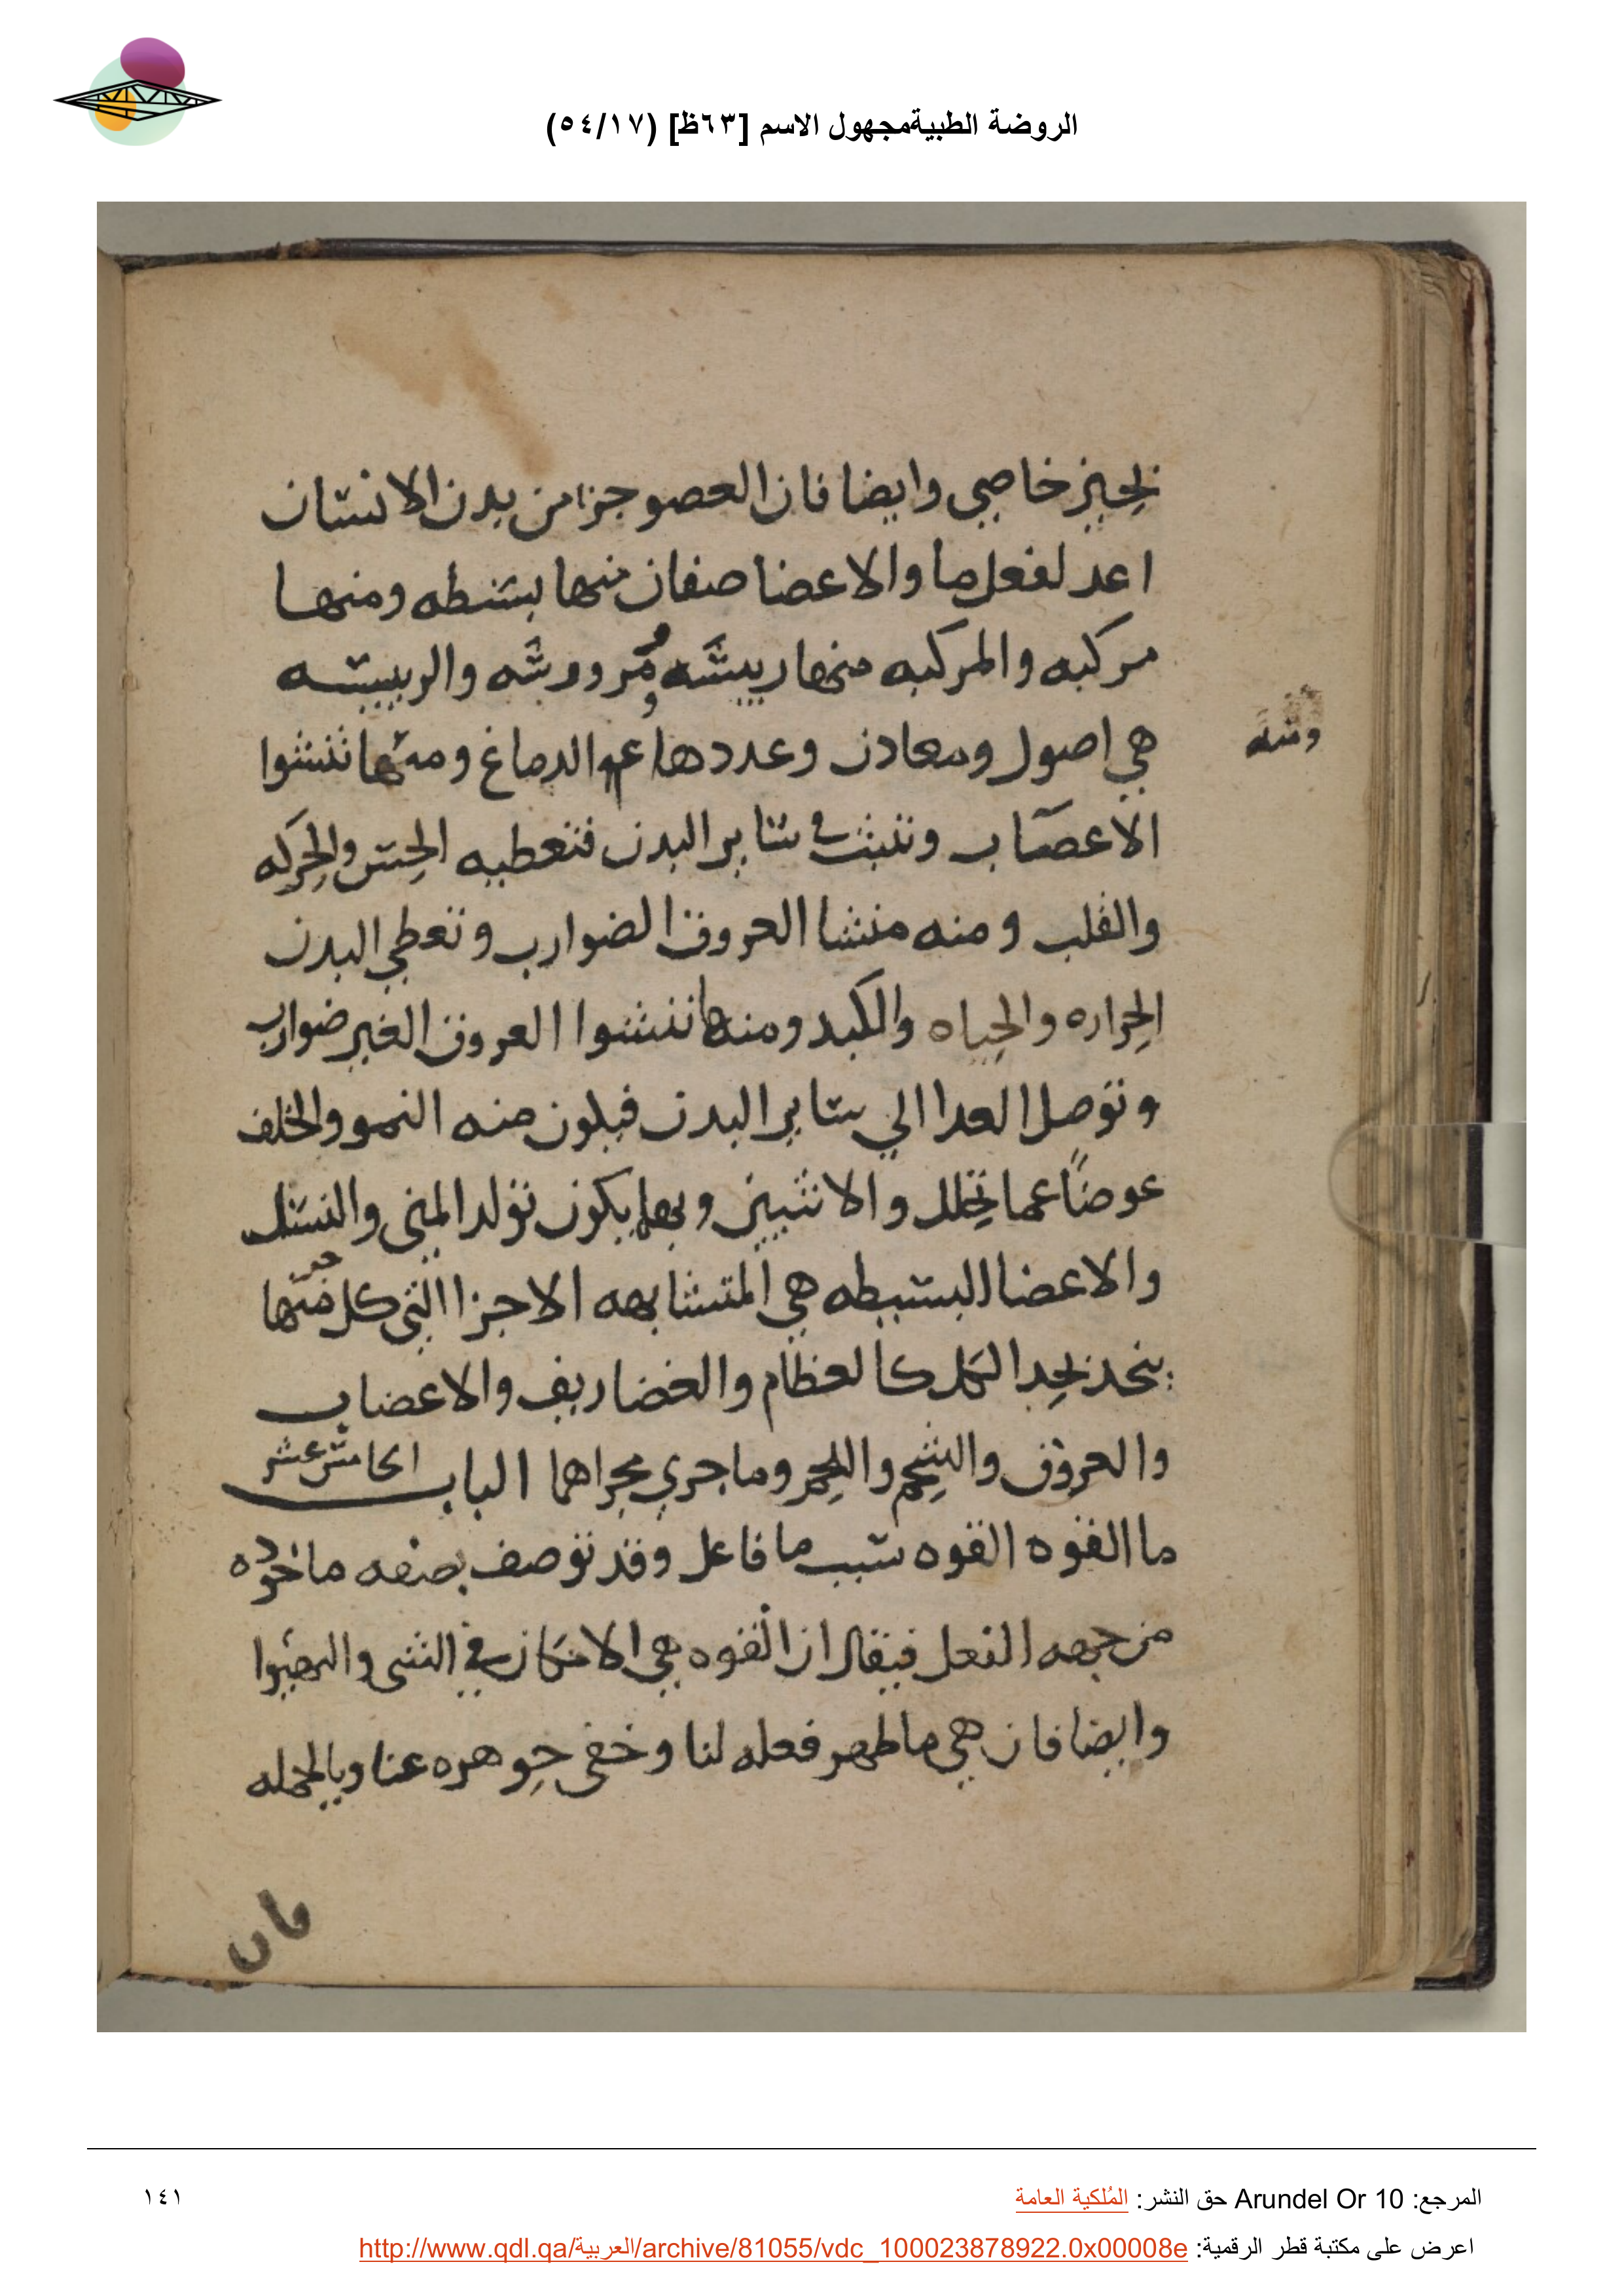 الروضة الطبيةمجهول الاسم [٦٣ظ] (٥٤/١٧)
خاصي وايضا فان العصو جزا من بدن الانسان
اعد لفعل ما والاعضا صنفان منها بسيطه ومنها
مركبه والمركبه منها رييسه ومرووسه والرييسه
هي اصول ومعادن وعددها الدماغ ومنها تنشوا
الاعصاب وتنبث في ساير البدن فتعطيه الحس والحركه
والقلب ومنه منشا العروق الضوارب وتعطي البدن
الحراره والحياه والكبد ومنها تنشوا العروق الغير ضوارب
وتوصل الغدا الي ساير البدن فيكون منه النمو والخلف
عوضًا عما تحلل والانثيين وبهما يكون تولد المني والنسل
والاعضا البسيطه هي المتشابهه الاجزا التي كل جز منها
يحد بحد الكل كالعظام والغضاريف والاعصاب
والعروق والشحم واللحم وما جري مجراهما الباب الخامس عشر
ما القوه القوه سبب ما فاعل وقد توصف بصفه ماخوده
من جهه الفعل فيقال ان القوه هي الامكان في الشي والهيوا
وايضا فان هي ما ظهر فعله لنا وخفي جوهره عنا وبالجمله
فان
المرجع: Arundel Or 10 حق النشر: المُلكية العامة
١٤١
اعرض على مكتبة قطر الرقمية: http://www.qdl.qa/العربية/archive/81055/vdc_100023878922.0x00008e